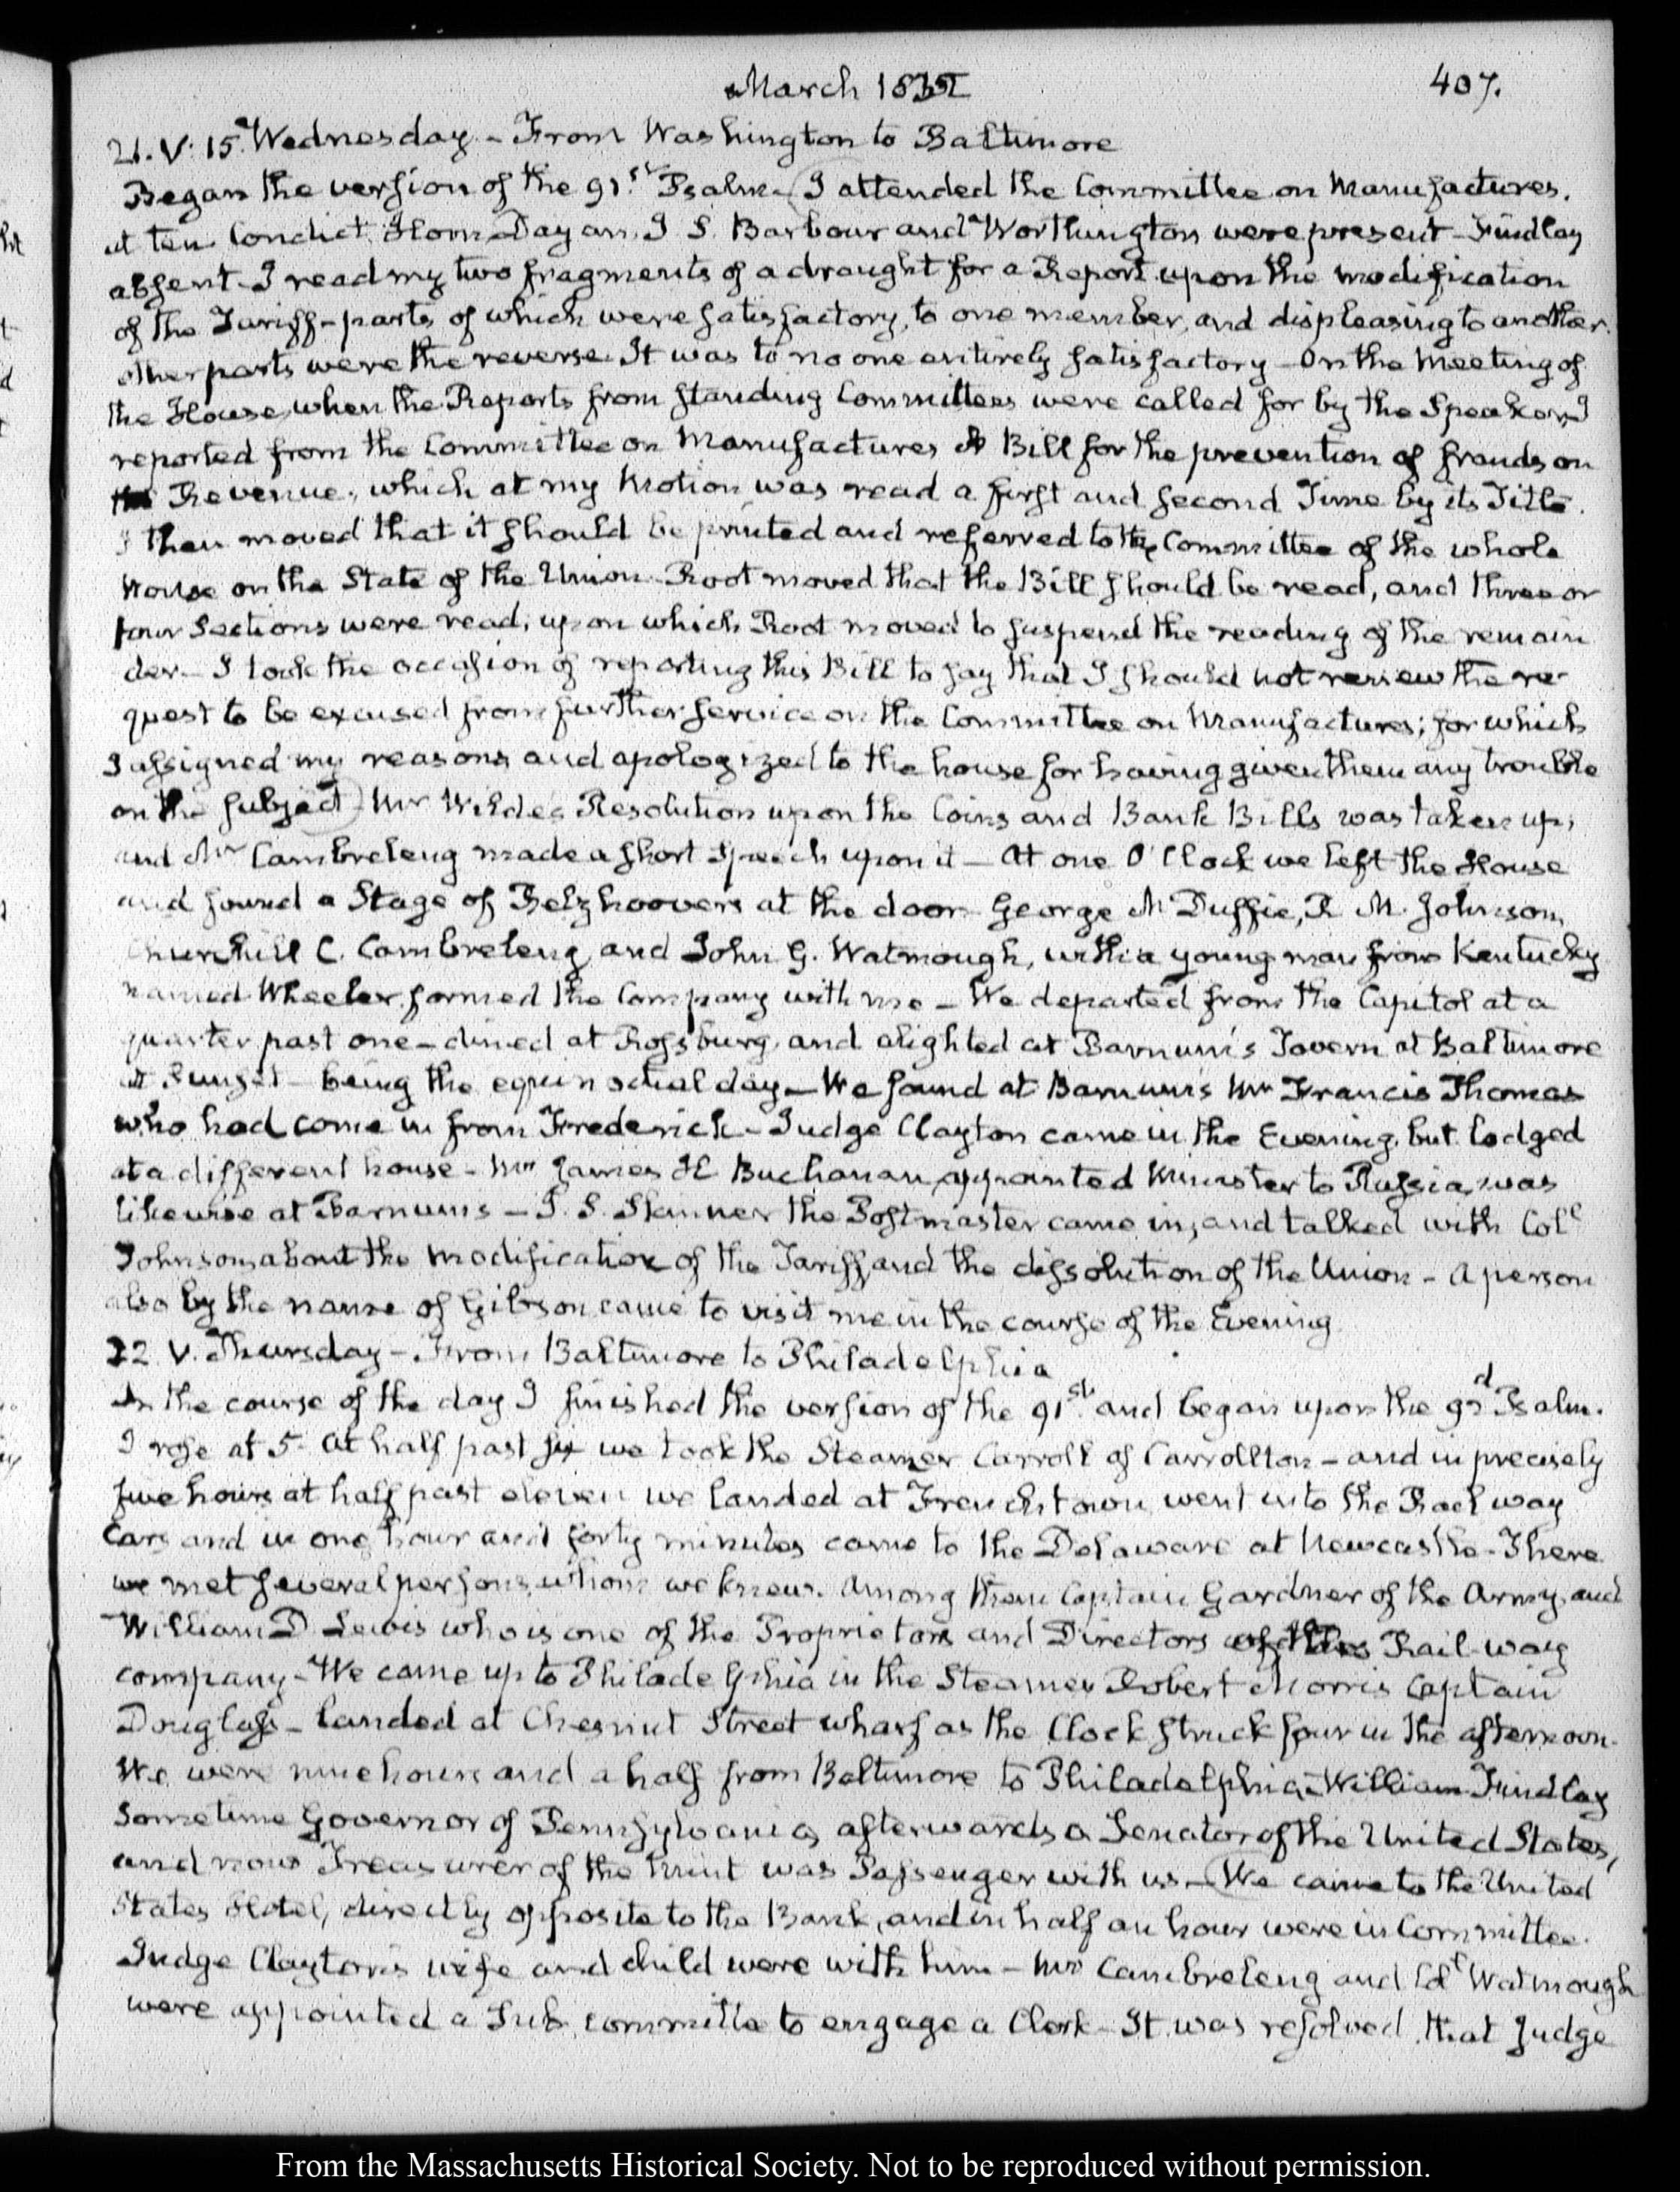 March 1832
407.
21. V: 15. Wednesday - From Washington to Baltimore
Began the version of the 91.st Psalm - I attended the Committee on Manufactures.
at ten Condict, Horn, Dayan, J S. Barbour and Worthington were present - Findlay
absent - I read my two fragments of a draught for a Report upon the modification
of the Tariff - parts of which were satisfactory, to one member, and displeasing to another.
other parts were the reverse. It was to no one entirely satisfactory - On the Meeting of
the House, when the Reports from standing Committees were called for by the Speaker, I
reported from the Committee on Manufactures A Bill for the prevention of frauds on
the Revenue, which at my Motion was read a first and second Time by its Title.
I then moved that it should be printed and referred to the Committee of the whole
House on the State of the Union. Root moved that the Bill should be read, and three or
four Sections were read, upon which Root moved to suspend the reading of the remain
der - I took the occasion of reporting this Bill to say that I should not renew the re-
quest to be excused from further service on the Committee on Manufactures; for which
I assigned my reasons and apologized to the house for having given them any trouble
on the subject - Mr Wilde's Resolution upon the Coins and Bank Bills was taken up,
and Mr Cambreleng made a short Speech upon it - At one O'Clock we left the House
and found a Stage of Belzhoovers at the door - George McDuffie, R. M. Johnson,
Churchill C. Cambreleng, and John G. Watmough, with a young man from Kentucky
named Wheeler, formed the Company with me - We departed from the Capitol at a
quarter past one - dined at Rossburg, and alighted at Barnum's Tavern at Baltimore
at Sunset - being the equinoctial day - We found at Barnum's Mr Francis Thomas
who had come in from Frederick - Judge Clayton came in the Evening, but lodged
at a different house - Mr James Buchanan, appointed Minister to Russia, was
likewise at Barnums - J. S. Skinner the Postmaster came in, and talked with Col.l
Johnson, about the modification of the Tariff, and the dissolution of the Union - A person
also by the name of Gibson came to visit me in the course of the Evening
22. V. Thursday - From Baltimore to Philadelphia
In the course of the day I finished the version of the 91.st and began upon the 92d Psalm.
I rose at 5. At half past six we took the Steamer Carroll of Carrollton - and in precisely
five hours at half past eleven we landed at Frenchtown, went into the Rail way
Cars and in one hour and forty minutes came to the Delaware at Newcastle - There
we met several persons, whom we knew. Among them Captain Gardner of the Army, and
William D. Lewis who is one of the Proprietors and Directors of this Rail-way
company - We came up to Philadelphia in the Steamer Robert Morris Captain
Douglass - landed at Chesnut Street wharf as the Clock struck four in the afternoon.
We were nine hours and a half from Baltimore to Philadelphia - William Findlay
Sometime Governor of Pennsylvania, afterwards a Senator of the United States,
and now Treasurer of the Mint was Passenger with us - We came to the United
States Hotel, directly opposite to the Bank, and in half an hour were in Committee.
Judge Clayton's wife and child were with him - Mr Cambreleng and Col.l Watmough
were appointed a Sub committee to engage a Clerk - It was resolved, that Judge
From the Massachusetts Historical Society. Not to be reproduced without permission.